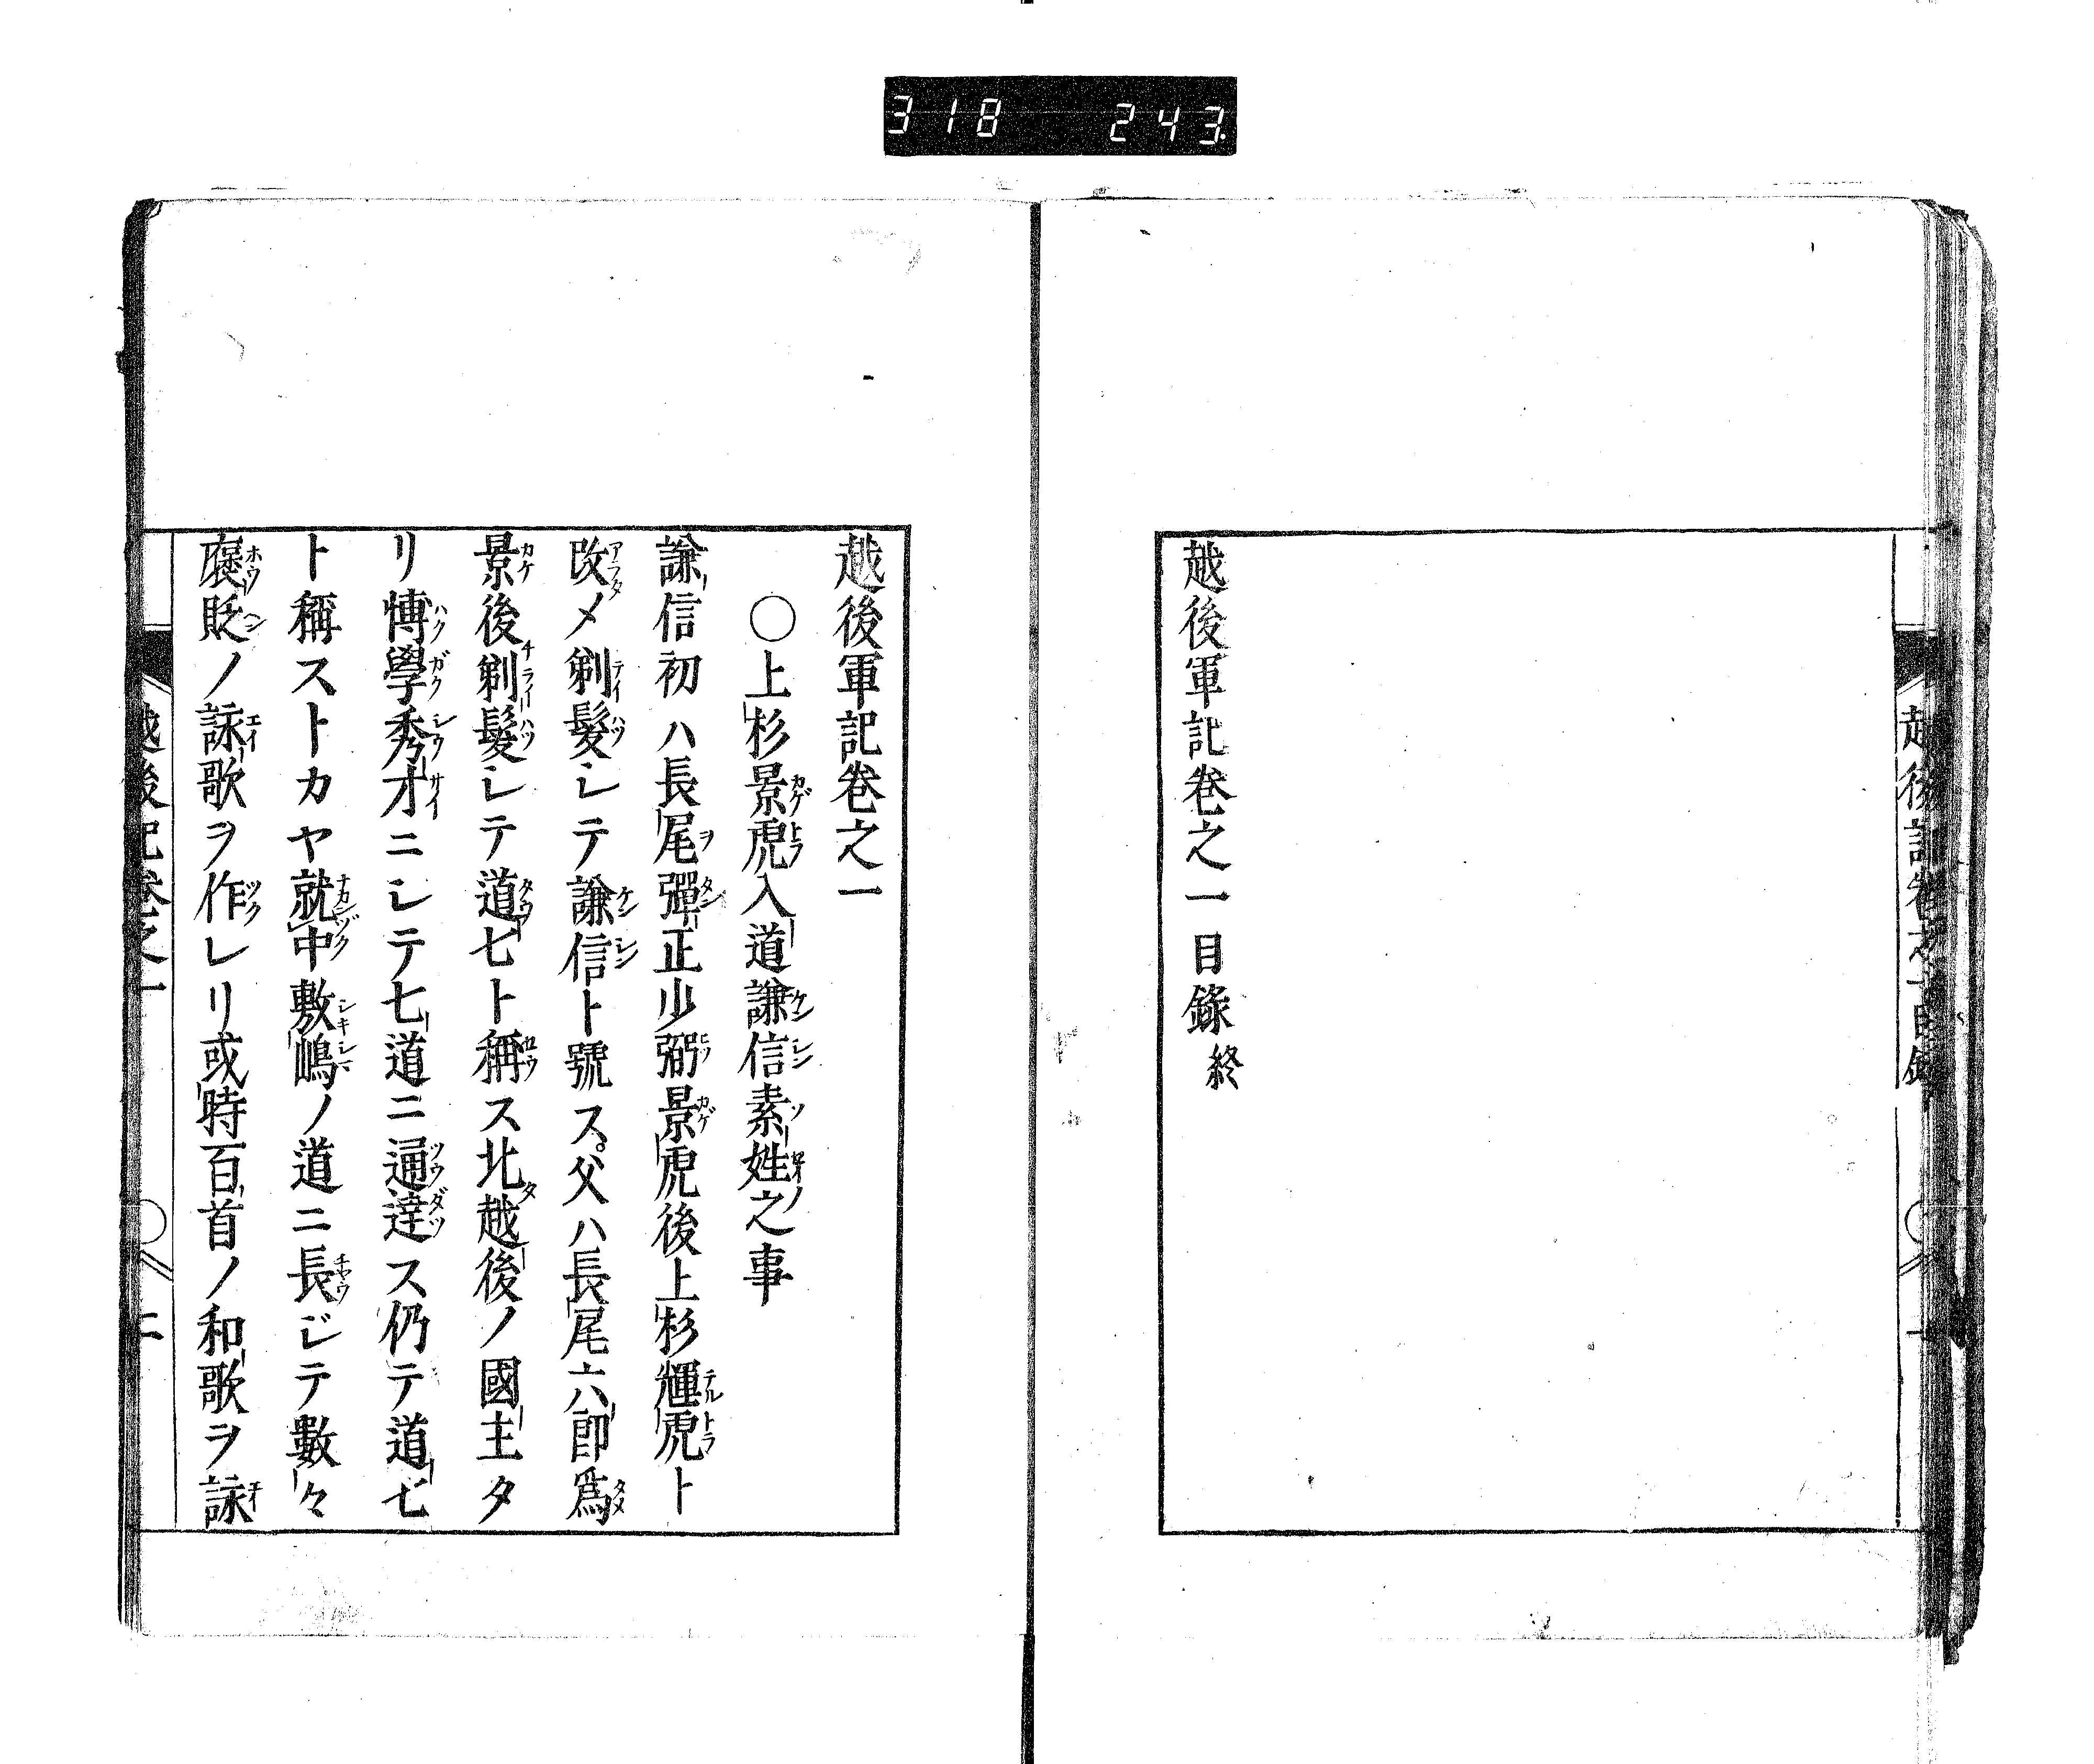 318 243
越後記卷之一目録
一
越後軍記卷之一目録終
越後軍記卷之一
○上杉景虎入道謙信素姓之事
謙信初ハ長尾彈正少弼景虎後上杉輝虎ト
改メ剃髮シテ謙信ト號ス。父ハ長尾六郎爲
景後剃髮シテ道七ト稱ス北越後ノ國主タ
リ博學秀才ニシテ七道ニ通達ス仍テ道七
ト稱ストカヤ就中敷嶋ノ道ニ長ジテ數々
褒貶ノ詠歌ヲ作レリ或時百首ノ和歌ヲ詠
越後記卷之一
二